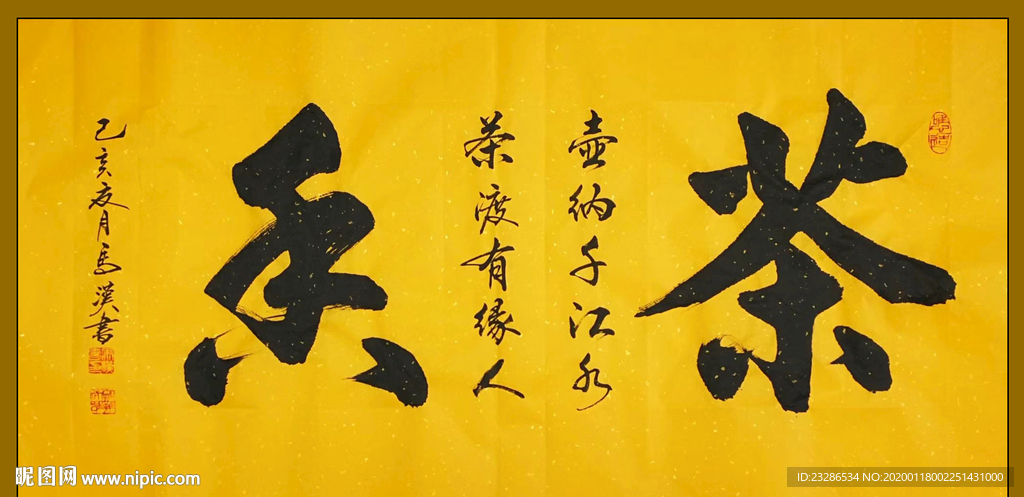 茶
壶纳千江水
茶渡有缘人
己亥夏月馬漢書
昵图网 www.nipic.com
ID:23286534 NO:20200118002251431000